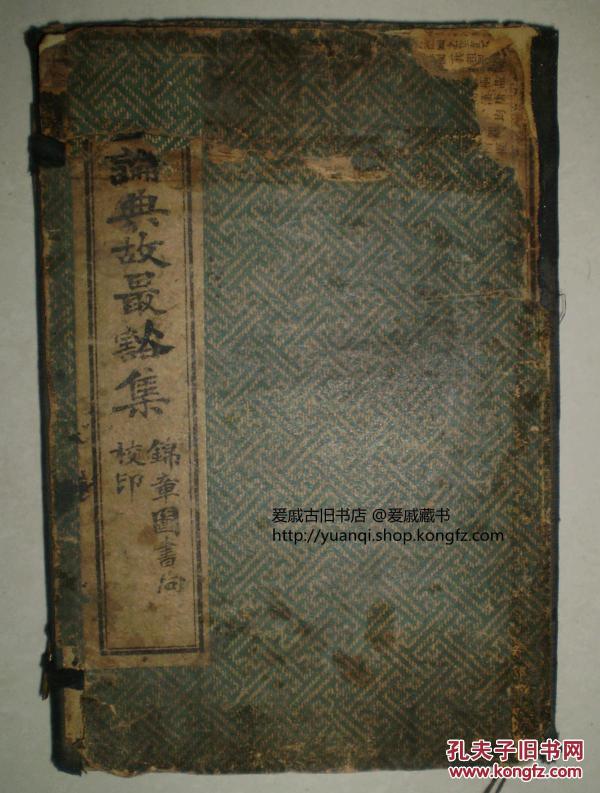 論典故最豁集
錦章圖書局
校印
爱戚古旧书店 @爱戚藏书
http://yuanqi.shop.kongfz.com
孔夫子旧书网
www.kongfz.com